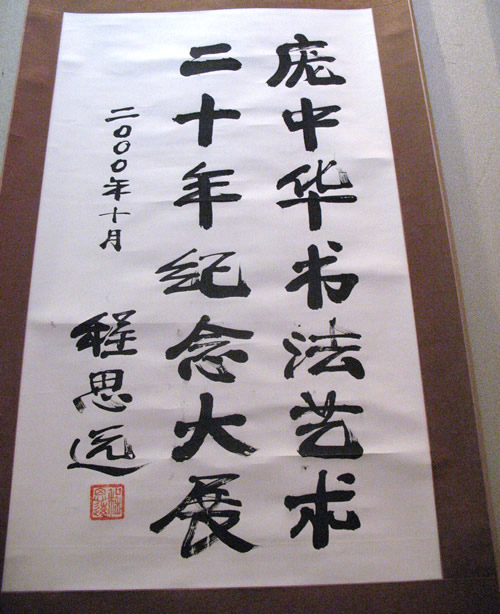 庞中华书法艺术
二十年纪念大展
二〇〇〇年十月
程思远